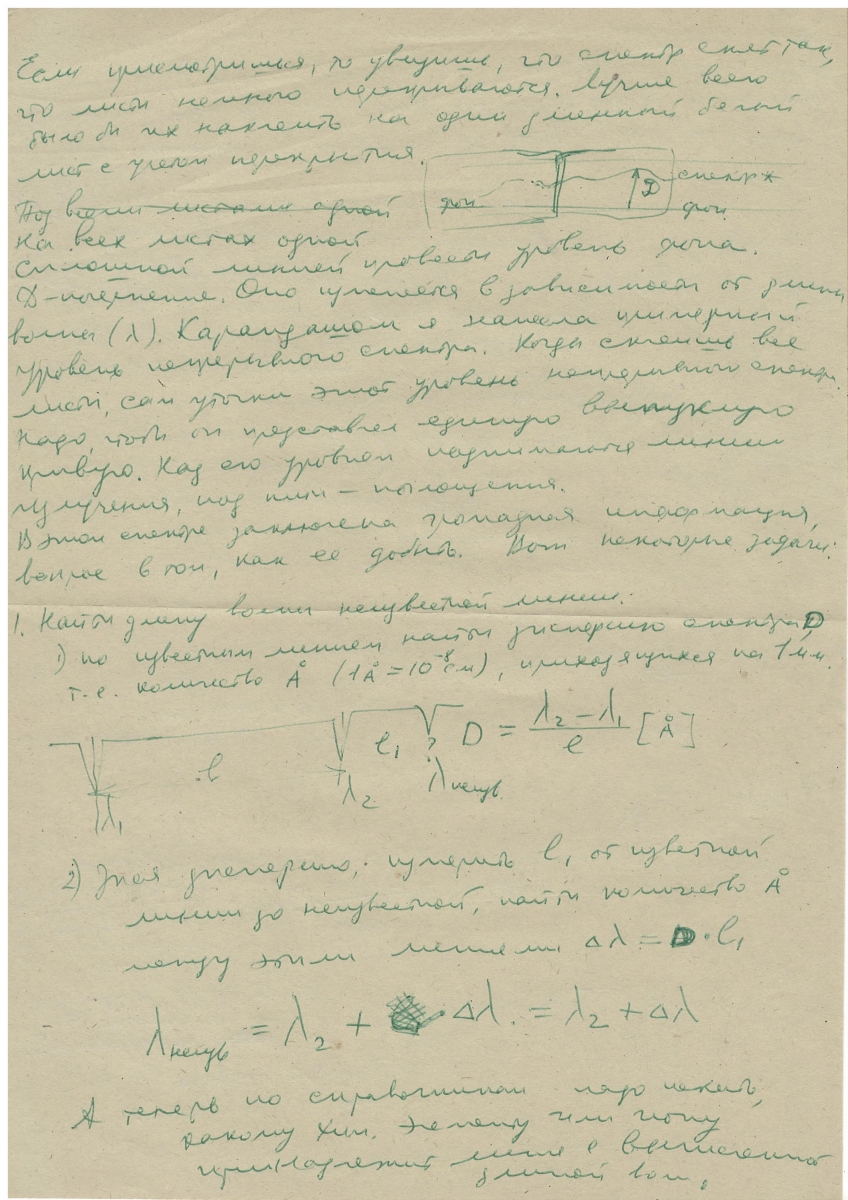 Если присмотришься, то увидишь, что спектр снят так,
что листы немного перекрываются. Лучше всего
было бы их наклеить на один длинный белый
лист с учетом перекрытия.
фон D спектр
фон
Под всеми листами одной
На всех листах одной
сплошной линией провести уровень фона.
D-почернение. Оно меняется в зависимости от длины
волны (λ). Карандашом я нанесла примерный
уровень непрерывного спектра. Когда склеишь все
листы, сам уточни этот уровень непрерывного спектра.
Надо, чтобы он представлял единую выпуклую
кривую. Над его уровнем поднимаются линии
излучения, под ним – поглощения.
В этом спектре заключена громадная информация,
вопрос в том, как ее добыть. Вот некоторые задачи:
1. Найти длину волны неизвестной линии.
1) по известным линиям найти дисперсию спектра D
т.е. количество Å (1Å = 10⁻⁸ см), приходящихся на 1 мм.
λ₁ l λ₂ l₁ ? λнеизв. D = (λ₂ – λ₁)/l [Å]
2) Зная дисперсию, измерить l₁ от известной
линии до неизвестной, найти количество Å
между этими линиями Δλ = D · l₁
λнеизв = λ₂ + · Δλ. = λ₂ + Δλ
А теперь по справочникам надо искать,
какому хим. элементу или иону
принадлежит линия с вычисленной
длиной волн.